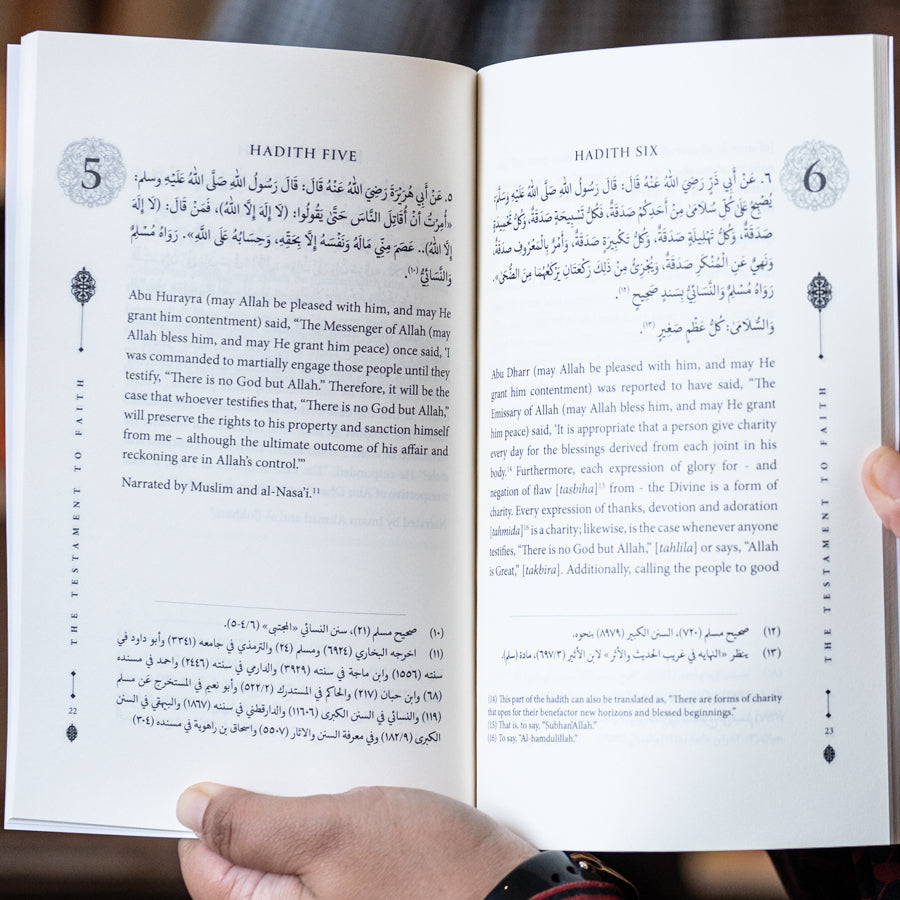 HADITH FIVE
5
٥. عَنْ أَبِي هُرَيْرَةَ رَضِيَ اللهُ عَنْهُ قَالَ: قَالَ رَسُولُ اللهِ صَلَّى اللهُ عَلَيْهِ وسلم:
«أُمِرْتُ أَنْ أُقَاتِلَ النَّاسَ حَتَّى يَقُولُوا: (لَا إِلَهَ إِلَّا اللهُ)، فَمَنْ قَالَ: (لَا إِلَهَ
إِلَّا اللهُ).. عَصَمَ مِنِّي مَالَهُ وَنَفْسَهُ إِلَّا بِحَقِّهِ، وَحِسَابُهُ عَلَى اللَّهِ». رَوَاهُ مُسْلِمٌ
وَالنَّسَائِيُّ(١٠).
Abu Hurayra (may Allah be pleased with him, and may He
grant him contentment) said, “The Messenger of Allah (may
Allah bless him, and may He grant him peace) once said, ‘I
was commanded to martially engage those people until they
testify, “There is no God but Allah.” Therefore, it will be the
case that whoever testifies that, “There is no God but Allah,”
will preserve the rights to his property and sanction himself
from me – although the ultimate outcome of his affair and
reckoning are in Allah’s control.’”
Narrated by Muslim and al-Nasa’i.11
(١٠) صحيح مسلم (٢١)، سنن النسائي «المجتبى» (٥٠٤/٦).
(١١) اخرجه البخاري (٦٩٢٤) ومسلم (٢٤) والترمذي في جامعه (٣٣٤١) وأبو داود في
سنته (١٥٥٦) وابن ماجة في سنته (٣٩٢٩) والداري في سنته (٢٤٤٦) واحمد في مسنده
(٦٨) وابن حبان (٢١٧) والحاكم في المستدرك (٥٢٢/٢) وأبو نعيم في المستخرج عن مسلم
(١١٩) والنسائي في السنن الكبرى (١١٦٠٦) والدارقطني في سننه (١٨٦٧) والبيهقي في السنن
الكبرى (١٨٢/٩) وفي معرفة السنن والاثار (٥٥٠٧) واسحاق بن راهوية في مسنده (٣٠٤)
THE TESTAMENT TO FAITH
22
HADITH SIX
6
٦. عَنْ أَبِي ذَرٍّ رَضِيَ اللهُ عَنْهُ قَالَ: قَالَ رَسُولُ اللهِ صَلَّى اللهُ عَلَيْهِ وَسَلَّمَ:
يُصْبِحُ عَلَى كُلِّ سُلَامَى مِنْ أَحَدِكُمْ صَدَقَةٌ، فَكُلُّ تَسْبِيحَةٍ صَدَقَةٌ، وَكُلُّ تَحْمِيدَةٍ
صَدَقَةٌ، وَكُلُّ تَهْلِيلَةٍ صَدَقَةٌ، وَكُلُّ تَكْبِيرَةٍ صَدَقَةٌ، وَأَمْرٌ بِالْمَعْرُوفِ صَدَقَةٌ،
وَنَهْيٌ عَنِ الْمُنْكَرِ صَدَقَةٌ، وَيُجْزِئُ مِنْ ذَلِكَ رَكْعَتَانِ يَرْكَعُهُمَا مِنَ الضُّحَى».
رَوَاهُ مُسْلِمٌ وَالنَّسَائِيُّ بِسَنَدٍ صَحِيحٍ(١٢).
وَالسُّلَامَى: كُلُّ عَظْمٍ صَغِيرٍ(١٣).
Abu Dharr (may Allah be pleased with him, and may He
grant him contentment) was reported to have said, “The
Emissary of Allah (may Allah bless him, and may He grant
him peace) said, ‘It is appropriate that a person give charity
every day for the blessings derived from each joint in his
body.14 Furthermore, each expression of glory for - and
negation of flaw [tasbiha]15 from - the Divine is a form of
charity. Every expression of thanks, devotion and adoration
[tahmida]16 is a charity; likewise, is the case whenever anyone
testifies, “There is no God but Allah,” [tahlila] or says, “Allah
is Great,” [takbira]. Additionally, calling the people to good
(١٢) صحيح مسلم (٧٢٠)، السنن الكبير (٨٩٧٩) بنحوه.
(١٣) ينظر «النهاية في غريب الحديث والأثر» لابن الأثير (٦٩٧/٣)، مادة (سلم).
(14) This part of the hadith can also be translated as, “There are forms of charity
that open for their benefactor new horizons and blessed beginnings.”
(15) That is, to say, “Subhan’Allah.”
(16) To say, “Al-hamdulillah.”
THE TESTAMENT TO FAITH
23